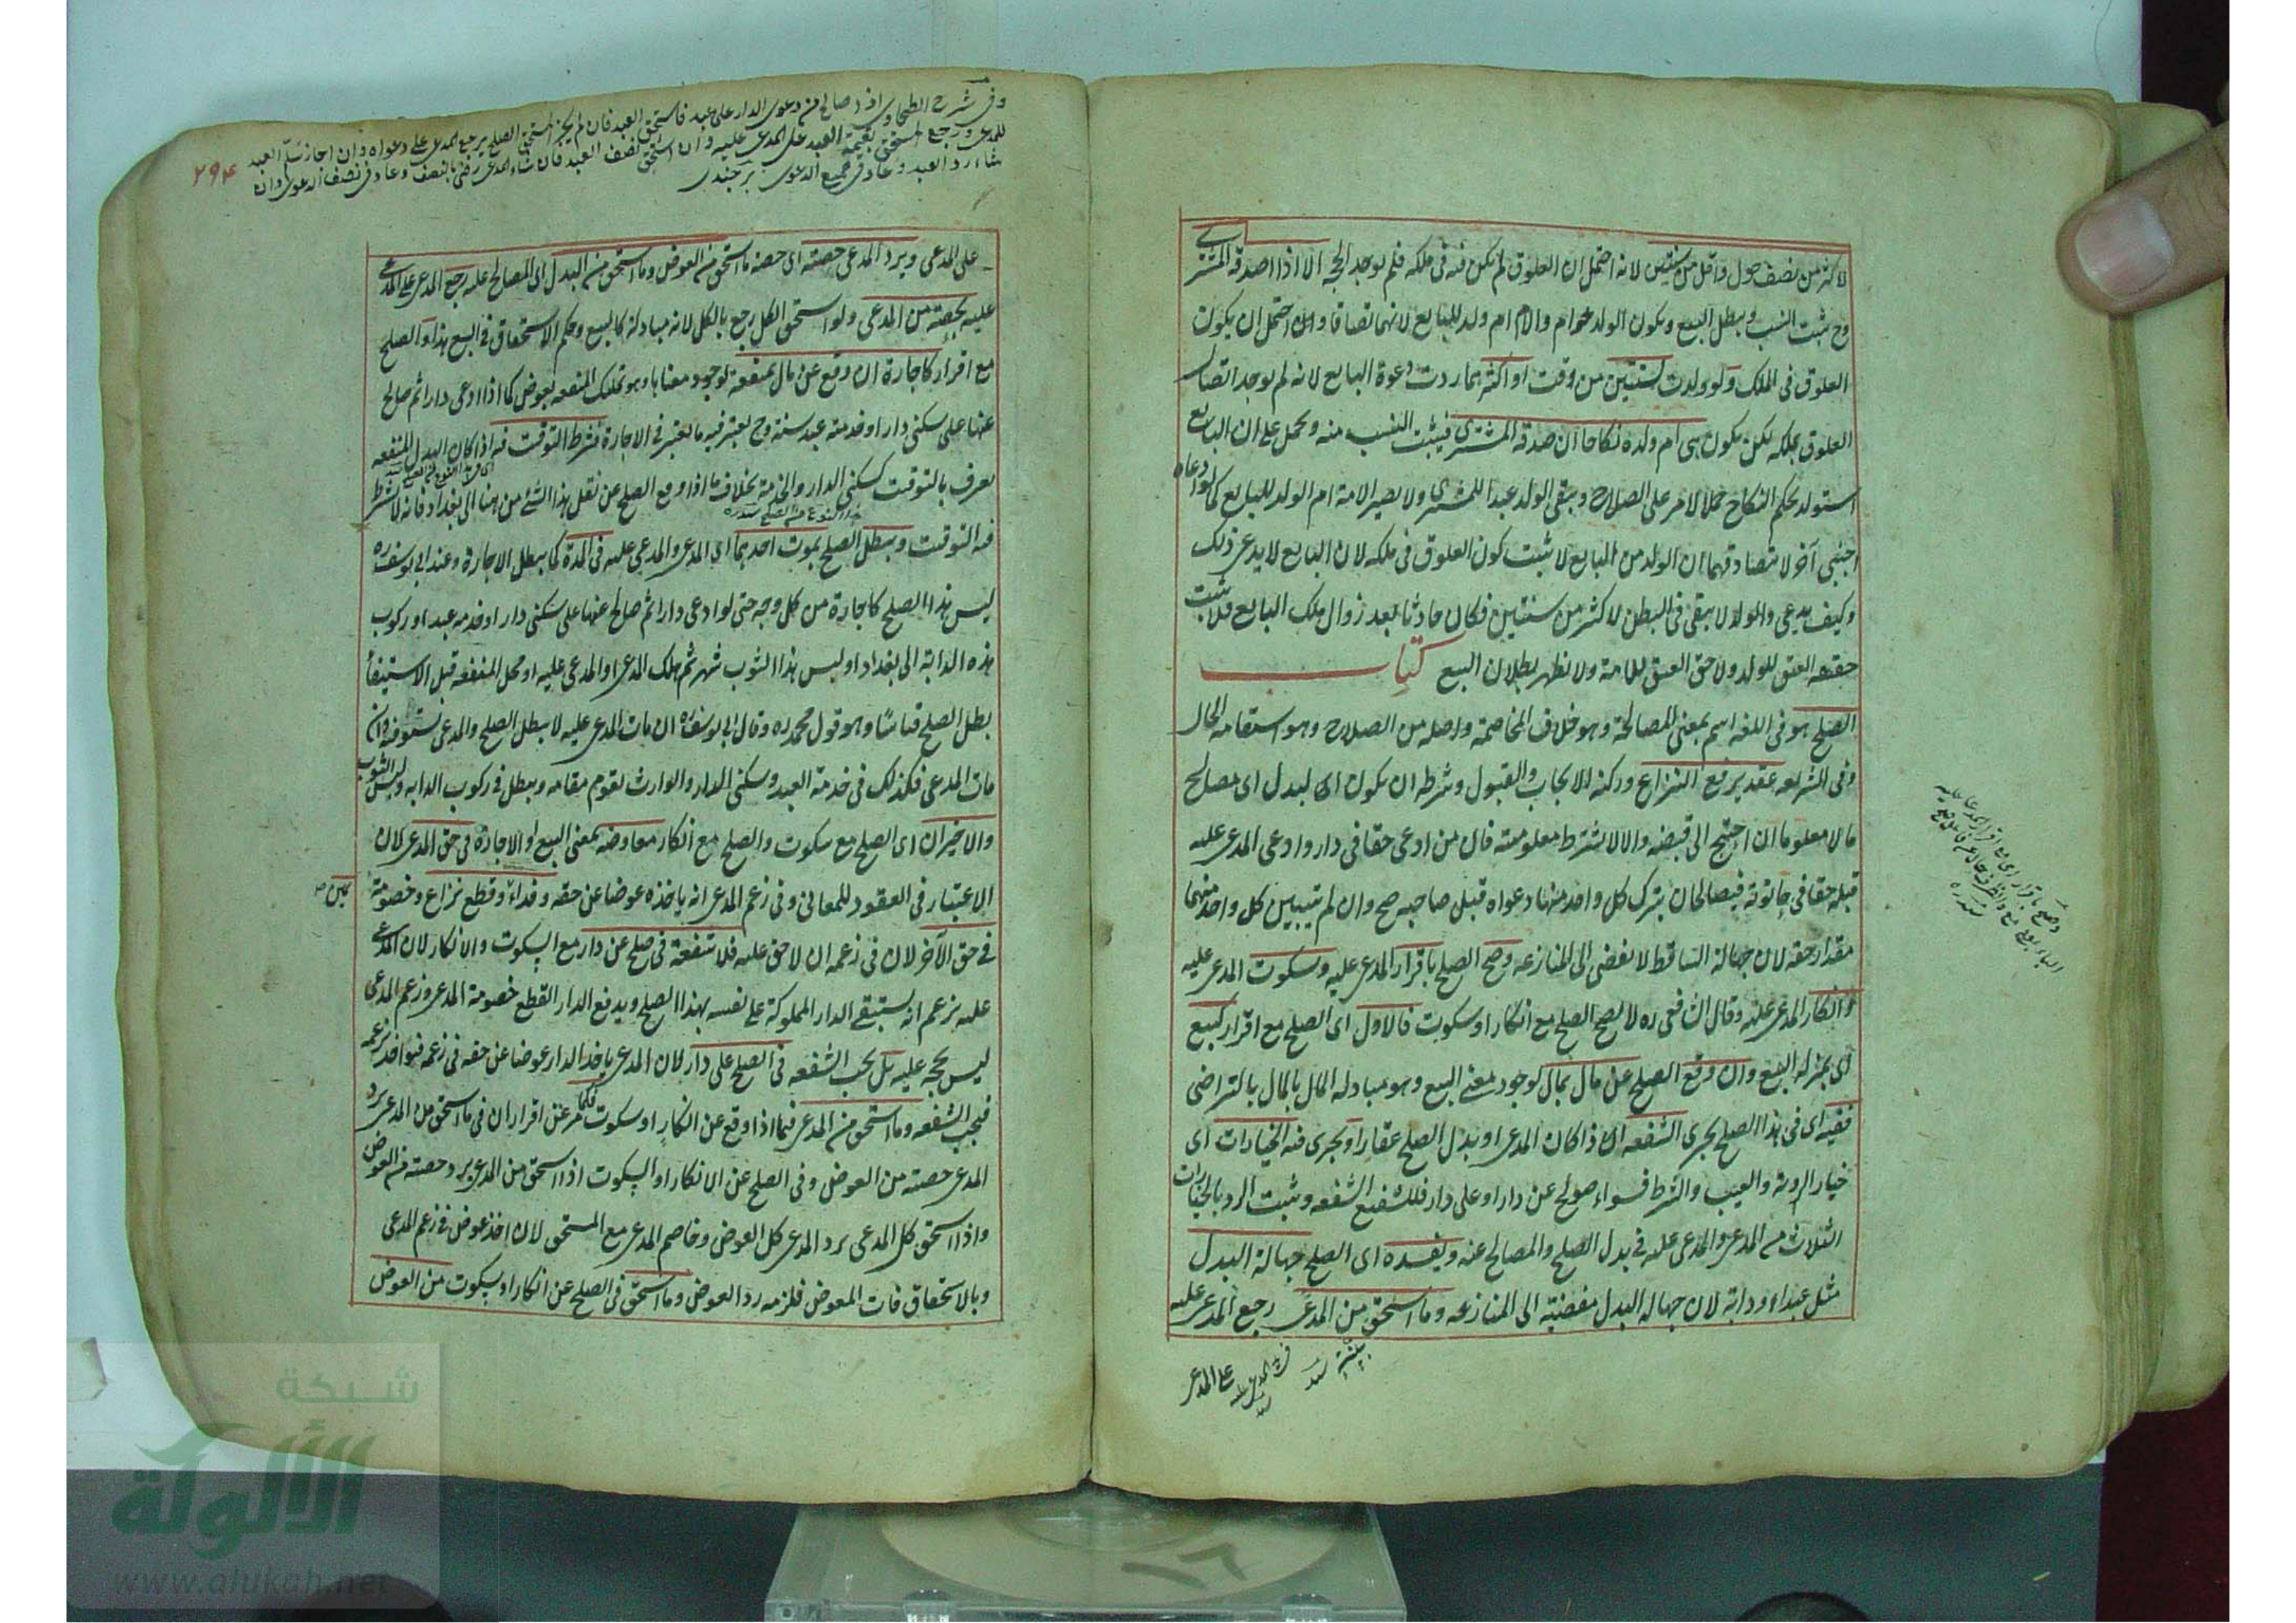 لاكثر من نصف حول واقل من سنتين لانه احتمل ان العلوق لم يكن فى ملكه فلم يوجد الحجة الا اذا صدقه المشترى
وح يثبت النسب ويبطل البيع ويكون الولد حرا والام ام ولد للبايع لانهما تصادقا واحتمل ان يكون
العلوق فى الملك ولو ولدت لسنتين من وقت او اكثر بها ردت دعوة البايع لانه لم يوجد اتصال
العلوق بملكه لكن يكون هى ام ولده نكاحا ان صدقه المشترى فيثبت النسب منه ويحمل على ان البايع
استولد بحكم النكاح حملا لامر على الصلاح ويبقى الولد عبدا للمشترى ولا يصير الامة ام الولد للبايع كما لو ادعاه
اجنبى آخر لا بتصادقهما ان الولد من البايع لا يثبت كون العلوق فى ملكه لان البايع لا يدعى ذلك
وكيف يدعى والولد لا يبقى فى البطن لاكثر من سنتين فكان حادثا بعد زوال ملك البايع فلا يثبت
حقيقة العتق للولد ولا حق العتق للامة ولا يظهر بطلان البيع كتاب
الصلح هو فى اللغة اسم بمعنى المصالحة وهو خلاف المخاصمة واصله من الصلاح وهو استقامة الحال
وفى الشريعة عقد يرفع النزاع وركنه الايجاب والقبول وشرطه ان يكون البدل اى مصالح
مالا معلوما ان احتيج الى قبضه والا لا يشترط معلوميته فان من ادعى حقا فى دار وادعى المدعى عليه
قبله حقا فى حانوته فيصالحان بترك كل واحد منهما دعواه قبل صاحبه صح وان لم يتبين كل واحد منهما
مقدار حقه لان جهالة الساقط لا يفضى الى المنازعة وصح الصلح باقرار المدعى عليه وسكوت المدعى عليه
وانكار المدعى عليه وقال الشافعى ره لا يصح الصلح مع انكار او سكوت فالاول اى الصلح مع اقرار كبيع
اى بمنزلة البيع وان وقع الصلح عن مال بمال لوجود معنى البيع وهو مبادلة المال بالمال بالتراضى
ففيه اى فى هذا الصلح يجرى الشفعة ان اذا كان المدعى او بدل الصلح عقارا ويجرى فيه الخيارات اى
خيار الرؤية والعيب والشرط فسواء صولح عن دار او على دار فللشفيع الشفعة ويثبت الرد بالخيارات
الثلاث من المدعى والمدعى عليه فى بدل الصلح والمصالح عنه ويفسده اى الصلح جهالة البدل
مثل عبد او دابة لان جهالة البدل مفضية الى المنازعة وما استحق من المدعى رجع المدعى عليه
على المدعى
٢٩٤
وفى شرح الطحاوى اذا صالح من دعوى الدار على عبد فاستحق العبد فان لم يجز المستحق الصلح يرجع المدعى على دعواه وان اجاز سلم العبد
للمدعى ورجع المستحق بقيمة العبد على المدعى عليه وان استحق نصف العبد فان شاء المدعى رضى بالنصف وعاد فى نصف الدعوى وان
شاء رد العبد وعاد فى جميع الدعوى برجندى
على المدعى ويرد المدعى حصته اى حصة ما استحق من العوض وما استحق من البدل اى المصالح عليه رجع المدعى على المدعى
عليه بحصته من المدعى ولو استحق الكل رجع بالكل لانه مبادلة كالبيع وحكم الاستحقاق فى البيع هذا والصلح
مع اقرار كاجارة ان وقع عن مال بمنفعة لوجود معناها وهو تمليك المنفعة بعوض كما اذا ادعى دارا ثم صالح
عنها على سكنى دار او خدمة عبد سنة وح يعتبر فيه ما يعتبر فى الاجارة فشرط التوقيت فيه اذا كان البدل المنفعة
يعرف بالتوقيت كسكنى الدار والخدمة بخلاف ما اذا وقع الصلح عن نقل هذا الشئ من هنا الى بغداد فانه لا يشترط
فيه التوقيت ويبطل الصلح بموت احدهما اى المدعى والمدعى عليه فى المدة كما يبطل الاجارة وعند ابى يوسف ره
ليس هذا الصلح كاجارة من كل وجه حتى لو ادعى دارا ثم صالح عنها على سكنى دار او خدمة عبد او ركوب
هذه الدابة الى بغداد او لبس هذا الثوب شهر ثم هلك المدعى او المدعى عليه او محل المنفعة قبل الاستيفاء
بطل الصلح قياسا وهو قول محمد ره وقال ابى يوسف ره ان مات المدعى عليه لا يبطل الصلح والمدعى يستوفيه وان
مات المدعى فكذلك فى خدمة العبد وسكنى الدار والوارث يقوم مقامه ويبطل فى ركوب الدابة ولبس الثوب
والاخيران اى الصلح مع سكوت والصلح مع انكار معاوضة بمعنى البيع او الاجارة فى حق المدعى لان
الاعتبار فى العقود للمعانى وفى زعم المدعى انه ياخذه عوضا عن حقه وفداء يمين وقطع نزاع وخصومة
فى حق الآخر لان فى زعمه ان لا حق عليه فلا شفعة فى صلح عن دار مع السكوت والانكار لان المدعى
عليه يزعم انه يستبقى الدار المملوكة على نفسه بهذا الصلح ويدفع الدار لقطع خصومة المدعى وزعم المدعى
ليس بحجة عليه بل يجب الشفعة فى الصلح على دار لان المدعى ياخذ الدار عوضا عن حقه فى زعمه فيواخذ بزعمه
فيجب الشفعة وما استحق من المدعى فيما اذا وقع عن انكار او سكوت فكما مر عن اقرار ان فى ما استحق من المدعى يرد
المدعى حصته من العوض وفى الصلح عن الانكار او السكوت اذا استحق من المدعى يرد حصته من العوض
واذا استحق كل المدعى يرد المدعى كل العوض وخاصم المدعى مع المستحق لان اخذ عوض فى زعم المدعى
وبالاستحقاق فات المعوض فلزمه رد العوض وما استحق فى الصلح عن انكار او سكوت من العوض
شبكة
الألوكة
www.alukah.net
١٦